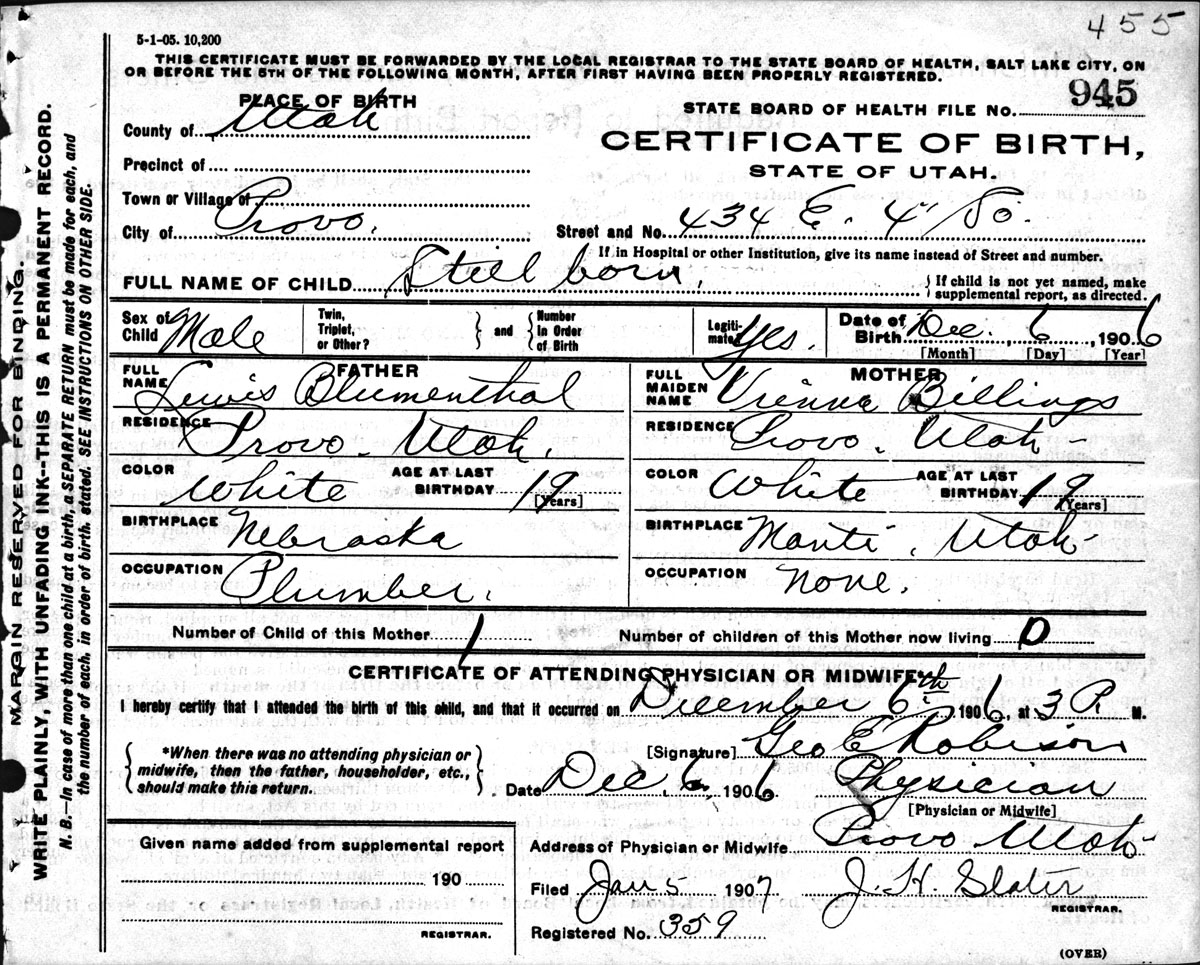 455
5-1-05. 10,200
THIS CERTIFICATE MUST BE FORWARDED BY THE LOCAL REGISTRAR TO THE STATE BOARD OF HEALTH, SALT LAKE CITY, ON
OR BEFORE THE 5TH OF THE FOLLOWING MONTH, AFTER FIRST HAVING BEEN PROPERLY REGISTERED.
PLACE OF BIRTH
STATE BOARD OF HEALTH FILE No. 945
County of Utah
CERTIFICATE OF BIRTH,
Precinct of
STATE OF UTAH.
Town or Village of
City of Provo.
Street and No. 434 E. 4" So.
If in Hospital or other Institution, give its name instead of Street and number.
FULL NAME OF CHILD Still born. } If child is not yet named, make
supplemental report, as directed.
Sex of Child Male
Twin, Triplet, or Other? } and { Number In Order of Birth
Legitimate Yes.
Date of Birth Dec. 6, 1906
[Month] [Day] [Year]
FATHER
FULL NAME Lewis Blumenthal
RESIDENCE Provo. Utah.
COLOR White AGE AT LAST BIRTHDAY 19 [Years]
BIRTHPLACE Nebraska
OCCUPATION Plumber.
MOTHER
FULL MAIDEN NAME Vienna Billings
RESIDENCE Provo. Utah
COLOR White AGE AT LAST BIRTHDAY 19 (Years]
BIRTHPLACE Manti. Utah
OCCUPATION None.
Number of Child of this Mother 1 Number of children of this Mother now living 0
CERTIFICATE OF ATTENDING PHYSICIAN OR MIDWIFE*
I hereby certify that I attended the birth of this child, and that it occurred on December 6th, 1906, at 3 P. M.
*When there was no attending physician or
midwife, then the father, householder, etc.,
should make this return.
[Signature] Geo E Robison
Date Dec. 6, 1906 Physician
[Physician or Midwife]
Given name added from supplemental report
190
REGISTRAR.
Address of Physician or Midwife Provo Utah
Filed Jan 5 1907 J. H. Slater
REGISTRAR.
Registered No. 359
(OVER)
MARGIN RESERVED FOR BINDING.
WRITE PLAINLY, WITH UNFADING INK--THIS IS A PERMANENT RECORD.
N. B.—In case of more than one child at a birth, a SEPARATE RETURN must be made for each, and
the number of each, in order of birth, stated. SEE INSTRUCTIONS ON OTHER SIDE.